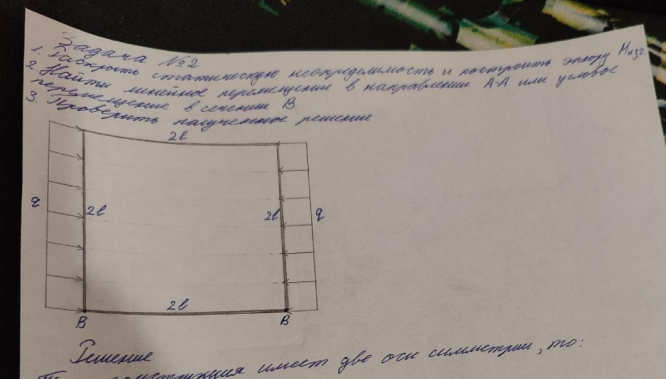 Задача №2
1. Раскрыть статическую неопределимость и построить эпюру Mизг
2. Найти линейное перемещение в направлении А-А или угловое
перемещение в сечении В.
3. Проверить полученное решение
2l
q
2l
2l
q
2l
В
В
Решение
конструкция имеет две оси симметрии, то: